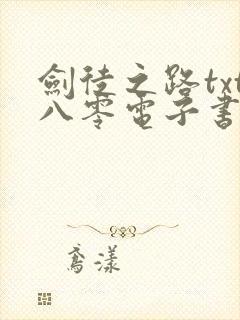 劍徒之路txt
八零電子書
鳶漾